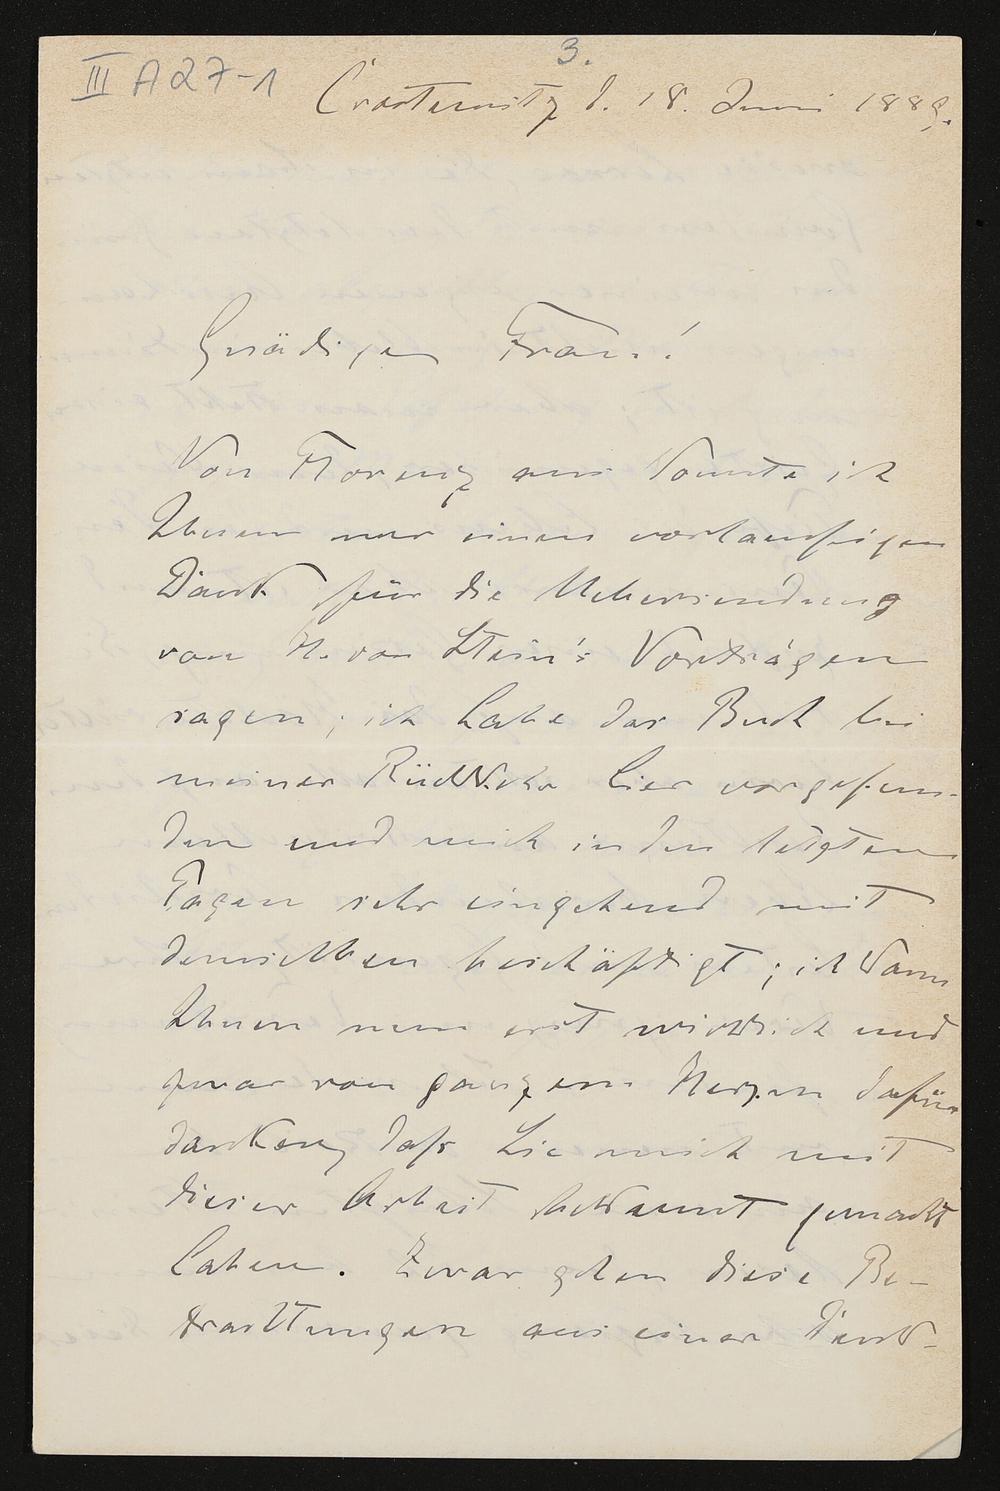 3.
III A 27-1
Crosternitz d. 18. Juni 1889.
Gnädige Frau!
Von Florenz aus konnte ich
Ihnen nur einen vorlaeufigen
Dank für die Uebersendung
von H. von Stein's Vorträgen
sagen; ich habe das Buch bei
meiner Rückkehr hier vorgefun-
den und mich in den letzten
Tagen sehr eingehend mit
demselben beschäftigt; ich kann
Ihnen nun erst wirklich und
zwar von ganzem Herzen dafür
danken, dass Sie mich mit
dieser Arbeit bekannt gemacht
haben. Zwar gehen diese Be-
trachtungen aus einer Denk-